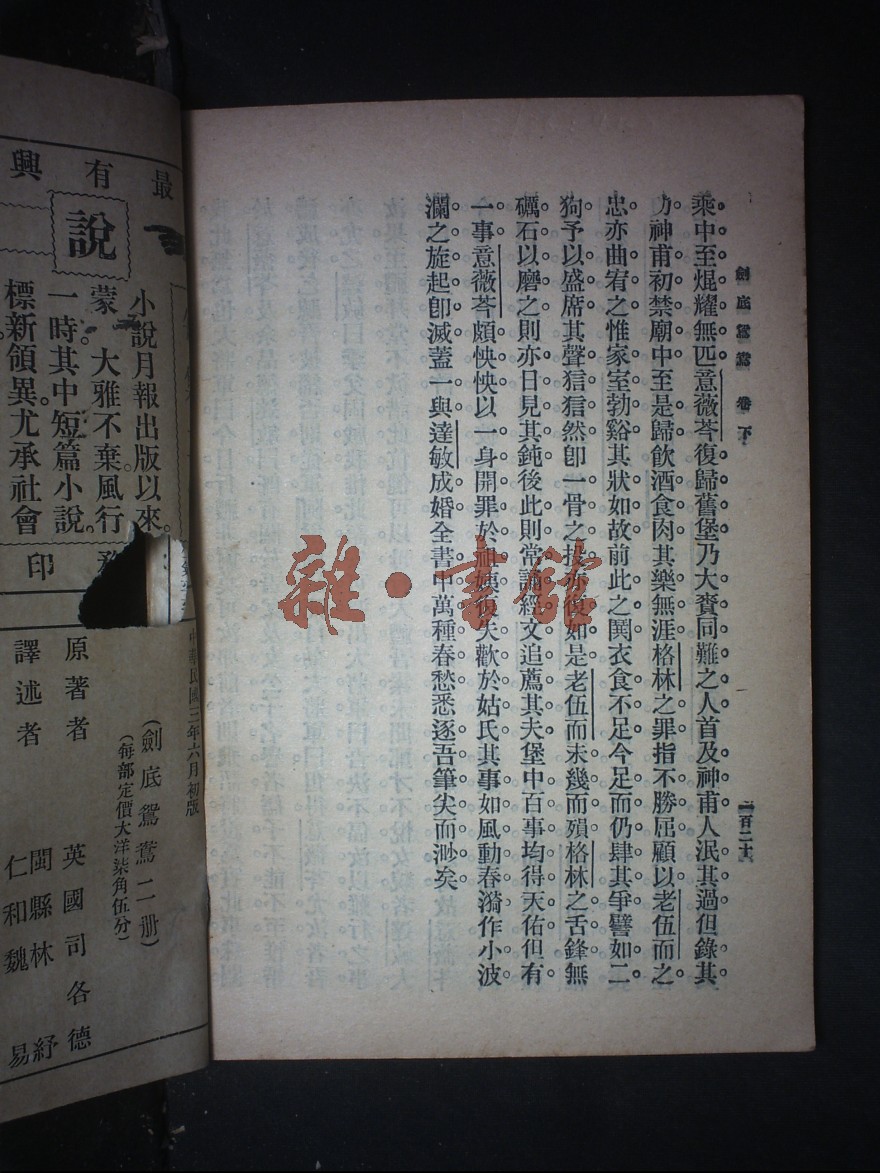 劍底鴛鴦 卷下
一百二十
乘中至焜耀無匹意薇芩復歸舊堡乃大賚同難之人首及神甫人泯其過但錄其
功神甫初禁廟中至是歸飲酒食肉其樂無涯格林之罪指不勝屈顧以老伍而之
忠亦曲宥之惟家室勃谿其狀如故前此之鬨衣食不足今足而仍肆其爭譬如二
狗予以盛席其聲狺狺然卽一骨之投亦復如是老伍而未幾而殞格林之舌鋒無
礪石以磨之則亦日見其鈍後此則常誦經文追薦其夫堡中百事均得天佑但有
一事意薇芩頗怏怏以一身開罪於祖姨復失歡於姑氏其事如風動春漪作小波
瀾之旋起卽滅蓋一與達敏成婚全書中萬種春愁悉逐吾筆尖而渺矣
雜·書館
最有興
說
小說月報出版以來。
蒙 大雅不棄風行
一時。其中短篇小說。
標新領異尤承社會
印
中華民國三年六月初版
(劍底鴛鴦二册)
(每部定價大洋柒角伍分)
原著者 英國司各德
譯述者 閩縣林紓
仁和魏易